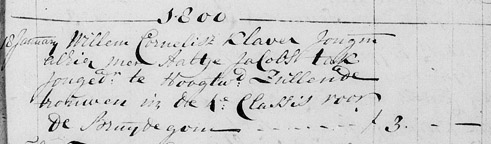 1800
18 January Willem Cornelisz Klaver Jongm
alhier met Aaltje Jacobs
Jonged. te Hoogtwd Zullende
trouwen in de 4e Classis voor
de Bruydegom - - - - - f 3. -